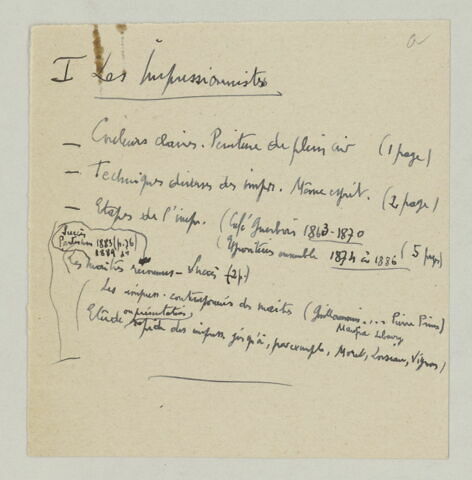 a
I Les Impressionnistes
— Couleurs claires. Peinture de plein air (1 page)
— Techniques diverses des impr. Même esprit. (2 page)
— Etapes de l'impr. (Café Guerbois 1863-1870
(Expositions ensemble 1874 à 1886 (5 pages)
Succès
1883 (p. 76)
1884
Les maîtres reconnus - Succès (2 p.)
(Les impress. contemporains des maîtres (Guillaumin ... Pierre Prins)
Maxfra Lebourg
ou présentation
Etude rapide des impress. jusqu'à, par exemple, Moret, Loiseau, Vignon)